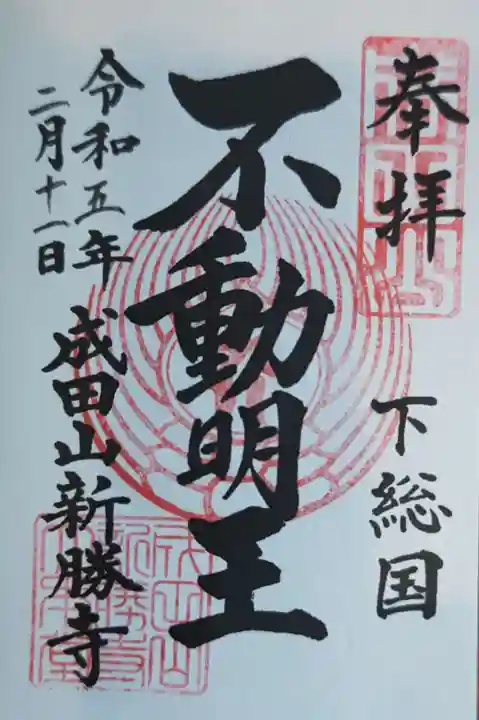 奉拝
下総国
不動明王
令和五年
二月十一日
成田山新勝寺